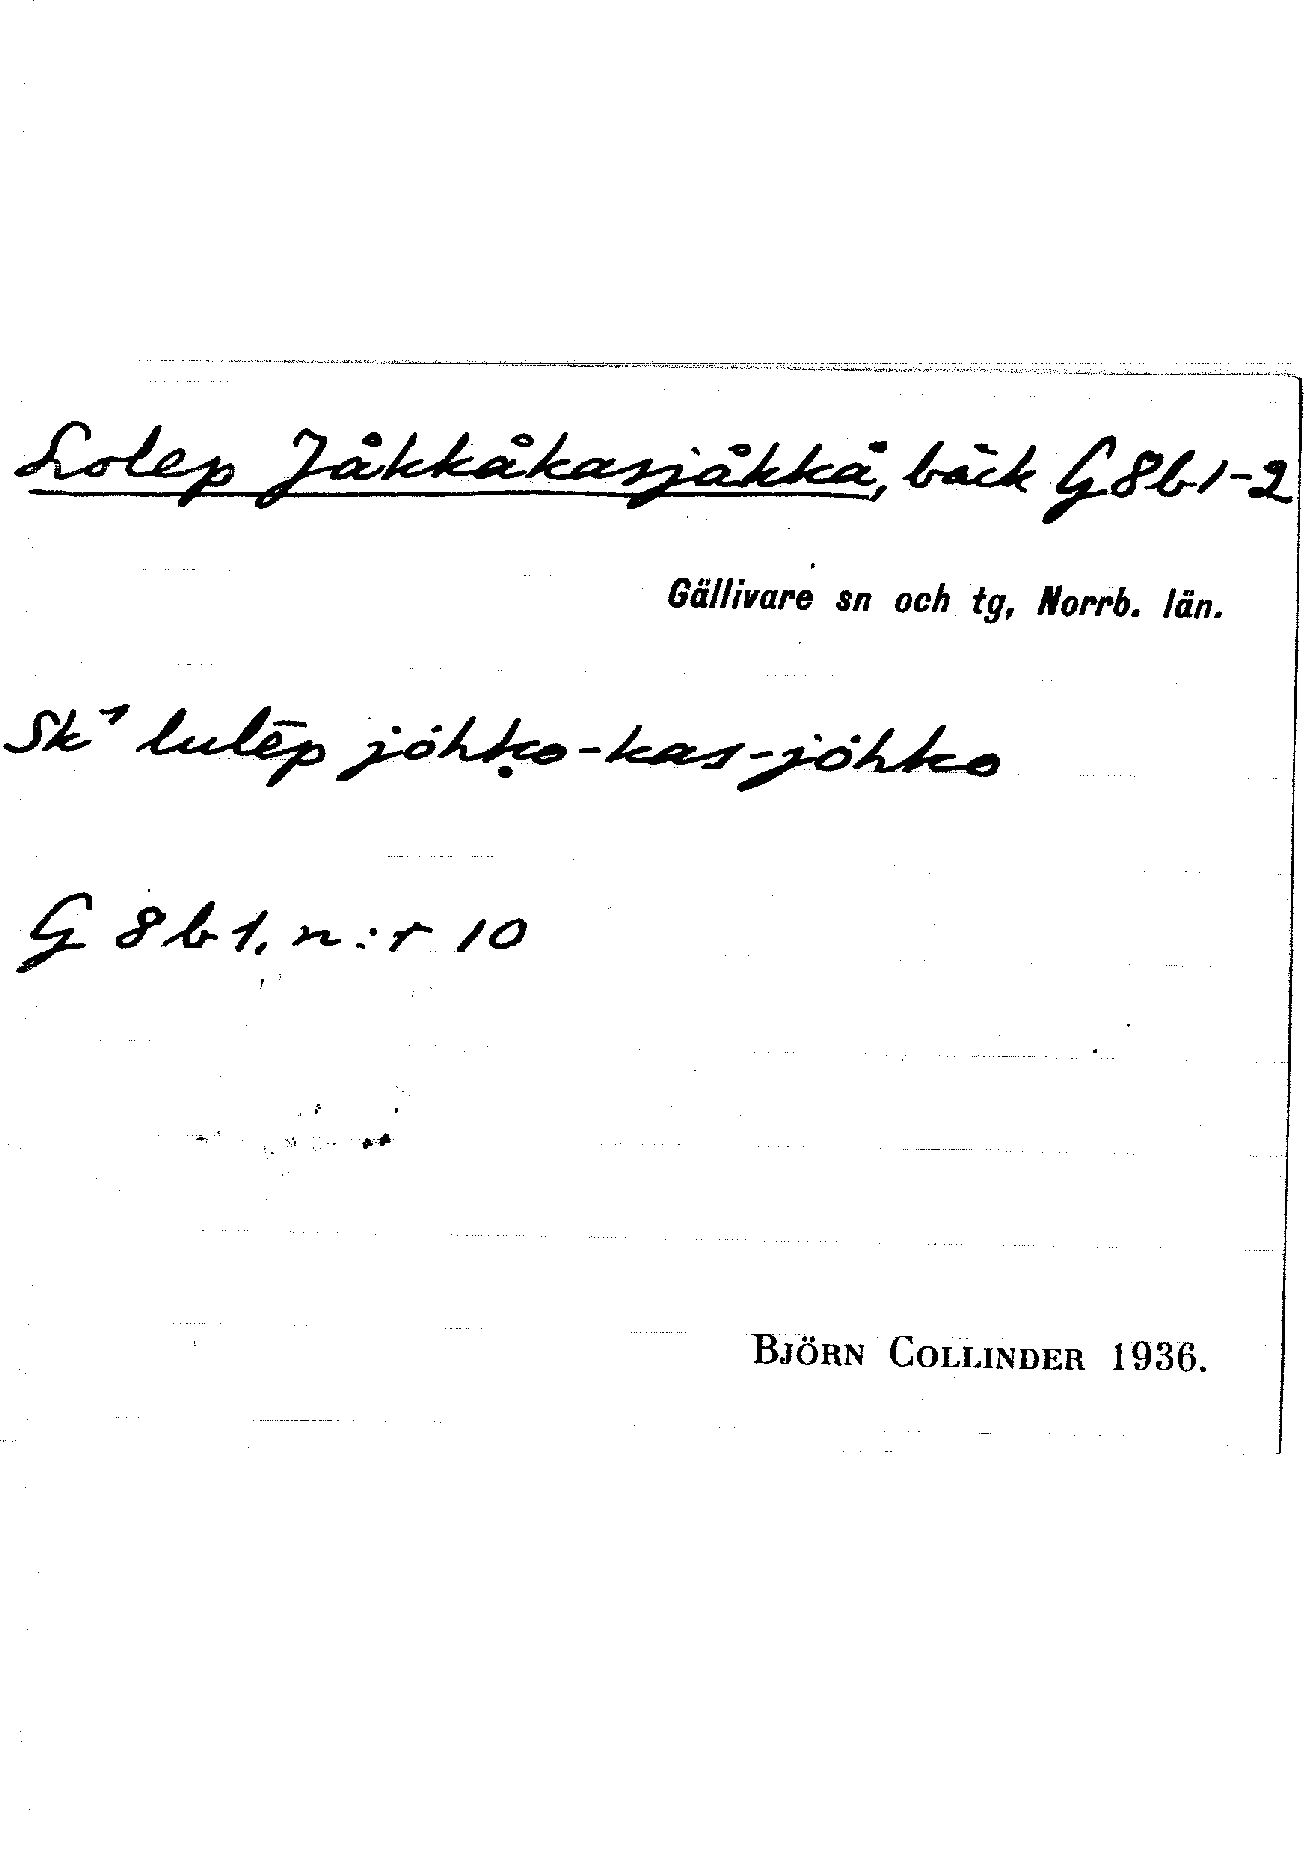 Lolep Jåkkåkasjåkkå, bäck G8b1-2
Gällivare sn och tg, Norrb. län.
Sk¹ lulēp jȯhk̥o-kas-jȯhko
G 8b1, n:r 10
BJÖRN COLLINDER 1936.